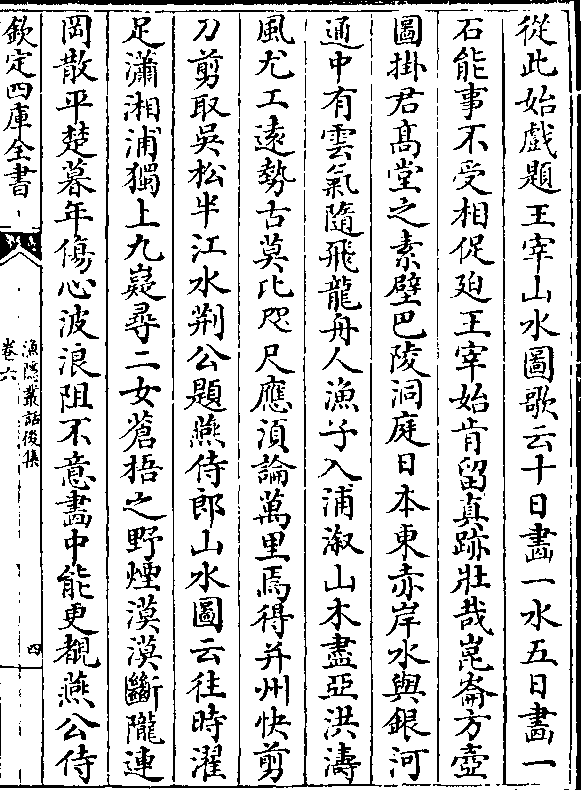 從此始戲題王宰山水圖歌云十日畫一水五日畫一
石能事不受相促廹王宰始肯留真跡壯哉崑崙方壺
圖掛君髙堂之素壁巴陵洞庭日本東赤岸水與銀河
通中有雲氣隨飛龍舟人漁子入浦溆山木盡亞洪濤
風尤工逺勢古莫比咫尺應湏論萬里焉得并州快剪
刀剪取吳松半江水荆公題燕侍郎山水圖云往時濯
足瀟湘浦獨上九嶷尋二女蒼梧之野煙漠漠斷隴連
岡散平楚暮年傷心波浪阻不意畫中能更覩燕公侍
欽定四庫全書
漁隱叢話後集
卷六
四